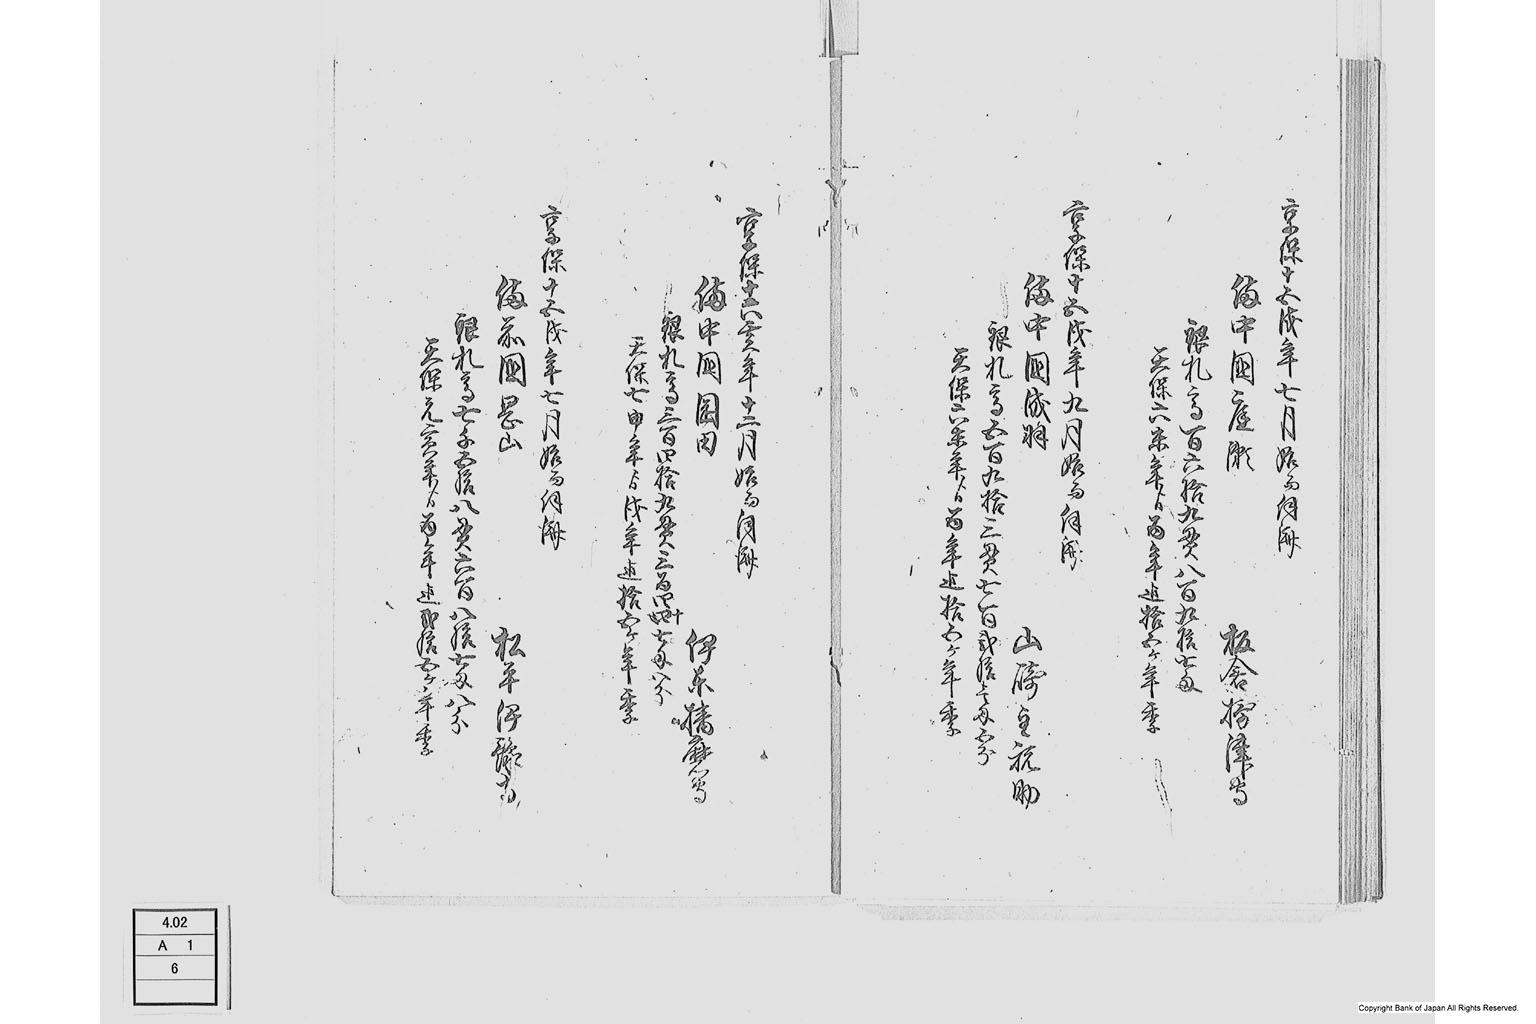 享保十五戌年七月始而伺済
備中國庭瀬
板倉摂津守
銀札高百六拾九貫八百九拾七匁
天保六未年ゟ当年迄拾五ケ年季
享保十五戌年九月始而伺済
備中國成羽
山崎主税助
銀札高五百九拾三貫七百弐拾壱匁五分
天保六未年ゟ当年迄拾五ケ年季
享保十六亥年十二月始而伺済
備中國岡田
伊東播磨守
銀札高三百四拾九貫三百四十七匁八分
天保七申年ゟ戌年迄拾五ケ年季
享保十五戌年七月始而伺済
備前國岡山
松平伊豫守
銀札高七千五拾八貫六百八拾七匁八分
天保元寅年ゟ当年迄弐拾五ケ年季
4.02
A 1
6
Copyright Bank of Japan All Rights Reserved.